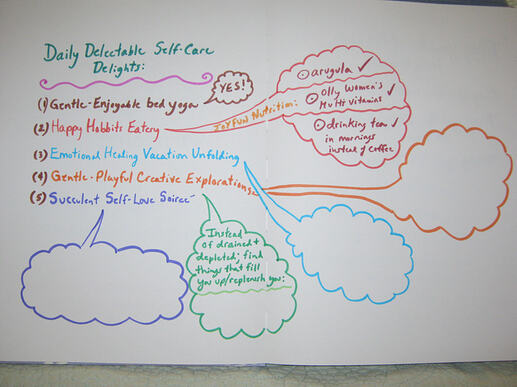 Daily Delectable Self-Care
Delights:
YES!
(1) Gentle-Enjoyable bed yoga
(2) Happy Hobbits Eatery
JOYFUN Nutrition:
arugula ✓
Olly Women's ✓
Multi vitamins
drinking tea ✓
in mornings
instead of coffee
(3) Emotional Healing Vacation Unfolding
(4) Gentle-Playful Creative Explorations
(5) Succulent Self-Love Soiree
Instead
of drained +
depleted; find
things that fill
you up/replenish you: